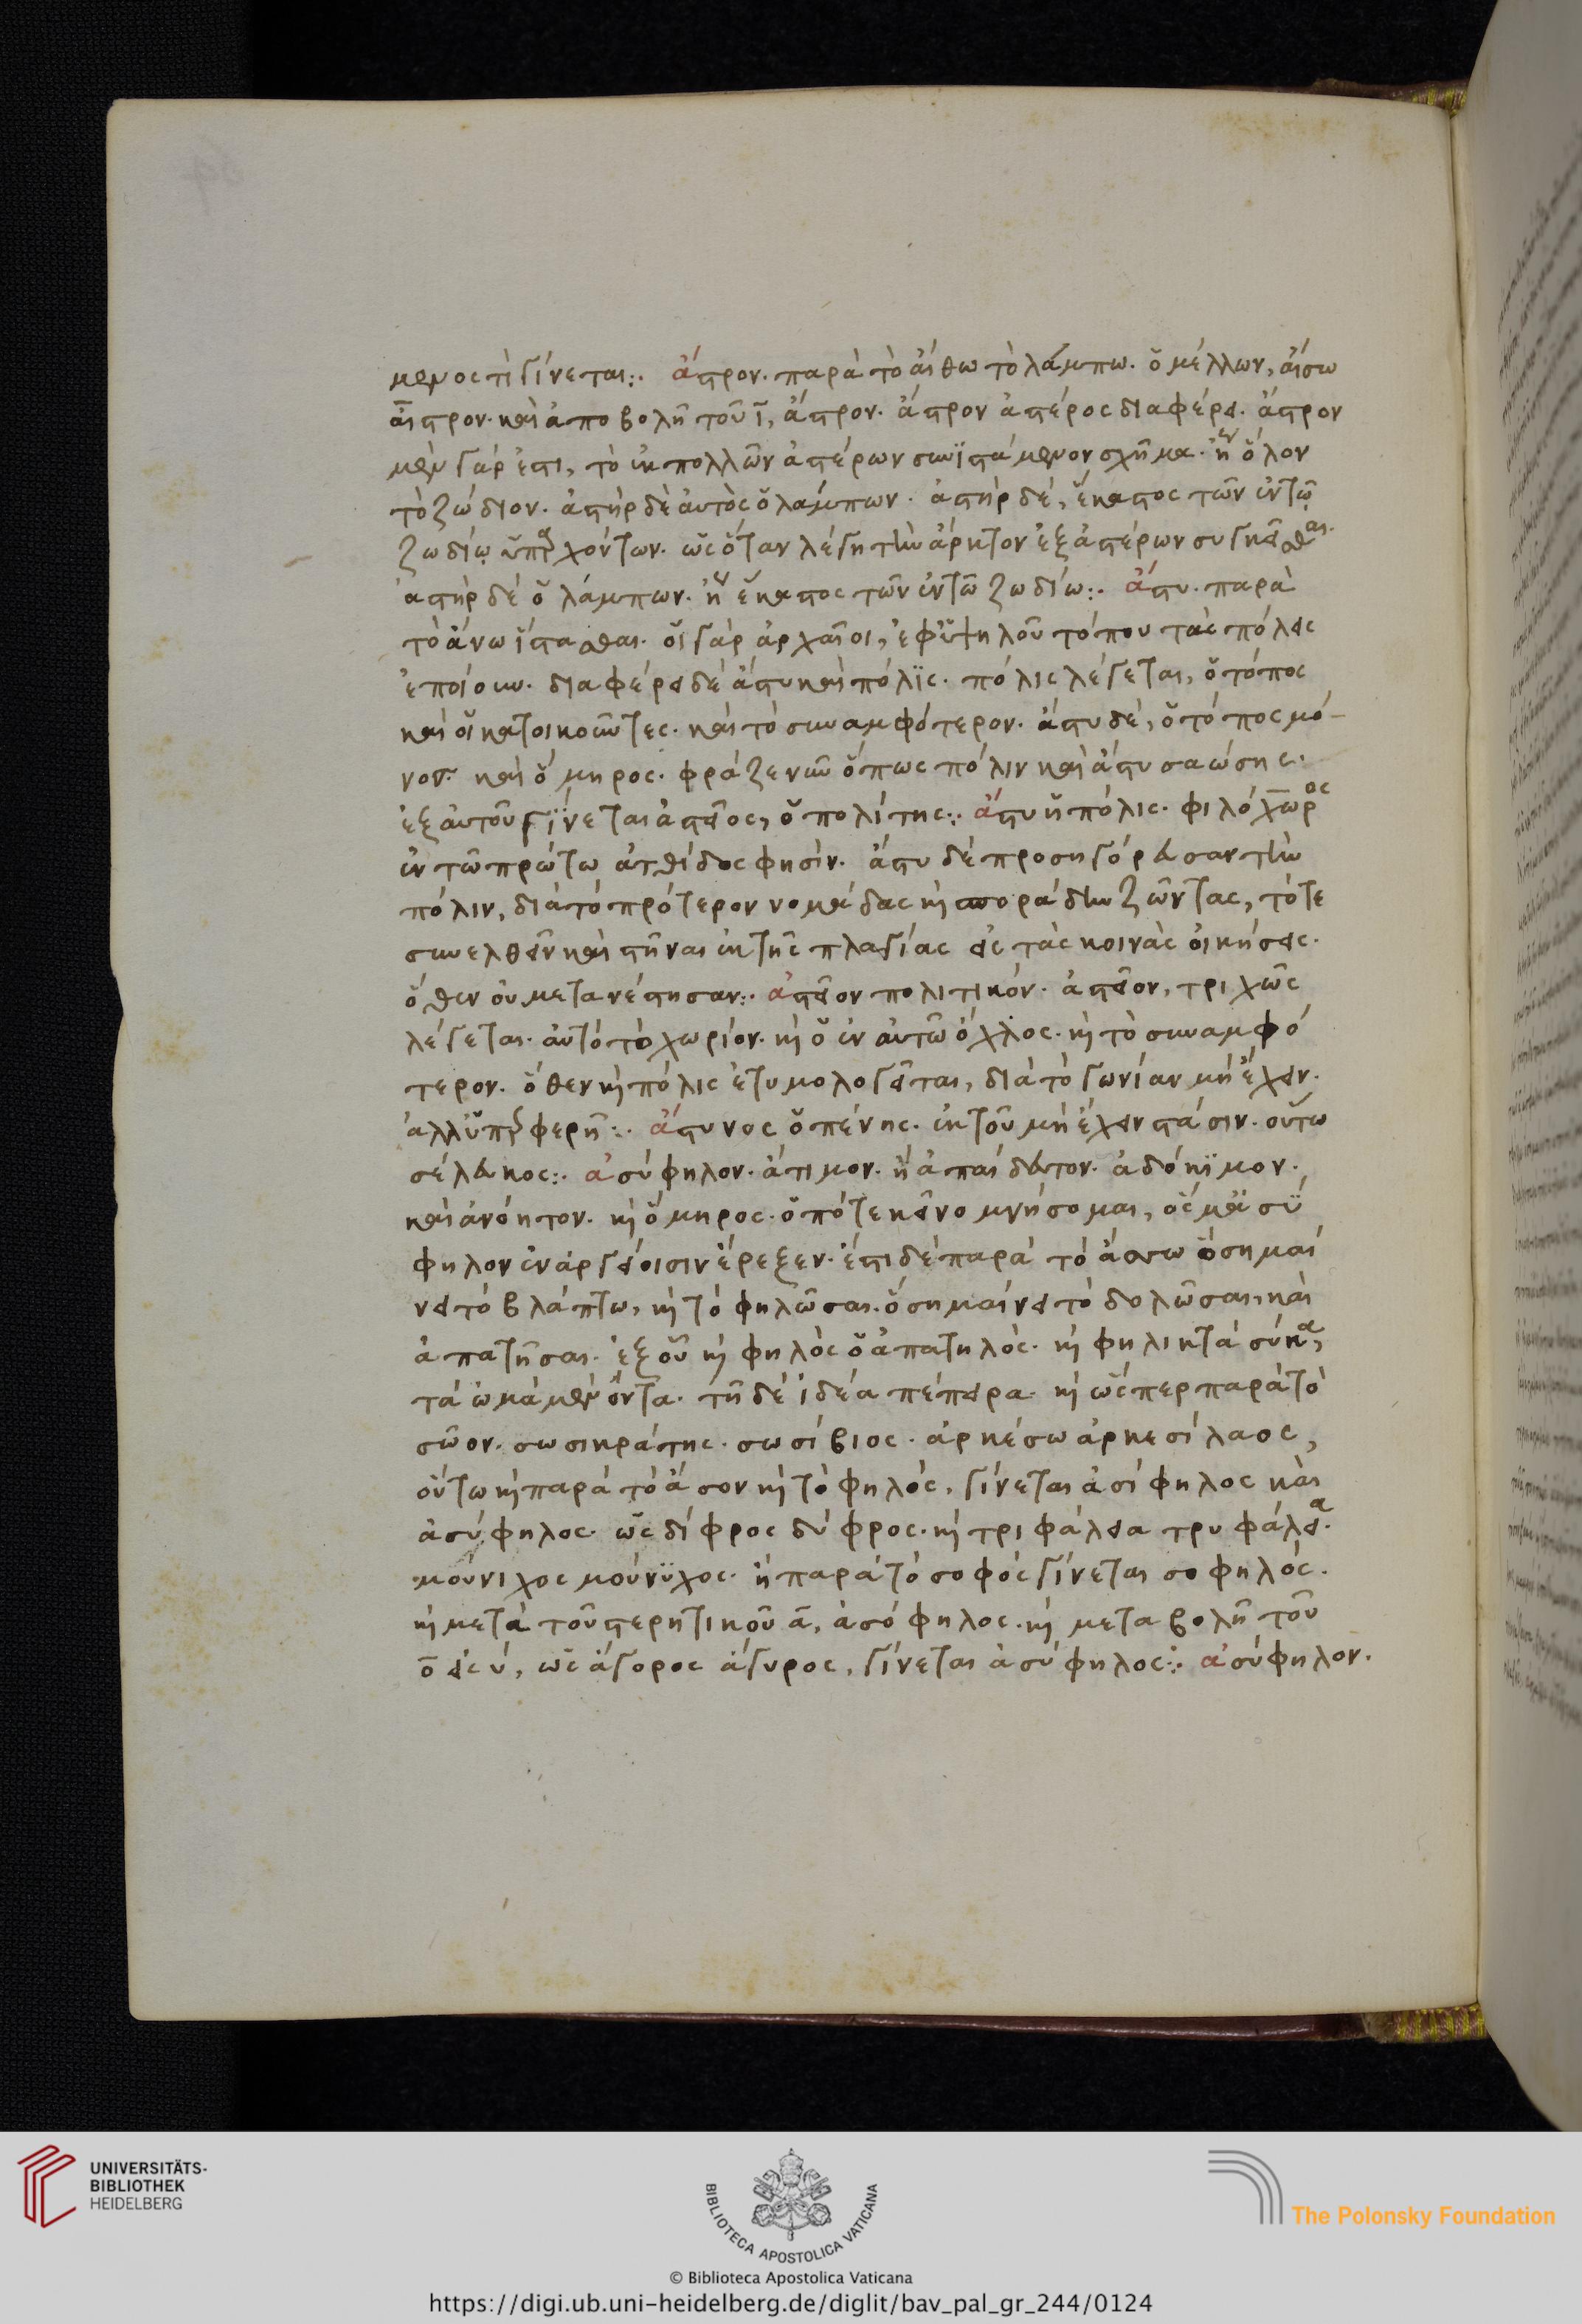 μενος τὶ γίνεται:. ἄστρον. παρὰ τὸ αἴθω τὸ λάμπω. ὁ μέλλων, αἴσω
αἶστρον. καὶ ἀποβολῆ τοῦ ῑ, ἄστρον. ἄστρον ἀστέρος διαφέρει. ἄστρον
μὲν γάρ ἐστι, τὸ ἐκ πολλῶν ἀστέρων συνϊστάμενον σχῆμα. ἢ ὅλον
τὸ ζώδιον. ἀστὴρ δὲ αὐτὸς ὁ λάμπων. ἀστὴρ δέ, ἕκαστος τῶν ἐν τῷ
ζωδίῳ ὑπαρχόντων. ὡς ὅταν λέγη τὴν ἄρκτον ἐξ ἀστέρων συγκεῖσθαι.
ἀστὴρ δέ ὁ λάμπων. ἢ ἕκαστος τῶν ἐν τῶ ζωδίω:. ἄστυ. παρὰ
τὸ ἄνω ἵστασθαι. οἱ γὰρ ἀρχαῖοι, ἐφ ὑψηλοῦ τόπου τὰς πόλεις
ἐποίουν. διαφέρει δέ ἄστυ καὶ πόλϊς. πόλις λέγεται, ὁ τόπος
καὶ οἱ κατοικοῦντες. καὶ τὸ συναμφότερον. ἄστυ δὲ, ὁ τόπος μό-
νον. καὶ ὅμηρος. φράζε νῦν ὅπως πόλιν καὶ ἄστυ σαώσης.
ἐξ αὐτοῦ γίνεται ἀστεῖος, ὁ πολίτης:. ἄστυ ἡ πόλις. φιλόχωρος
ἐν τῶ πρώτω ἀτθίδος φησὶν. ἄστυ δέ προσηγόρευσαν τὴν
πόλιν, διὰ τό πρότερον νομάδας καὶ σποράδην ζῶντας, τότε
συνελθεῖν καὶ στῆναι ἐκ τῆς πλαγίας εἰς τὰς κοινὰς οἰκήσεις.
ὅθεν οὐ μετανέστησαν:. ἀστεῖον πολιτικόν. ἀστεῖον, τριχῶς
λέγεται. αὐτό τὸ χωρίον. καὶ ὁ ἐν αὐτῶ ὄχλος. καὶ τὸ συναμφό
τερον. ὅθεν καὶ πόλις ἐτυμολογεῖται, διὰ τὸ γωνίαν μὴ ἔχειν.
ἀλλ ὑπερφερῆ:. ἄστυνος ὁ πένης. ἐκ τοῦ μὴ ἔχειν στάσιν. οὕτω
σέλευκος:. ἀσύφηλον. ἄτιμον. ἢ ἀπαίδευτον. ἀδόκϊμον.
καὶ ἀνόητον. καὶ ὅμηρος. ὁπότε κεῖνο μνήσομαι, ὥς μ ἀσύ
φηλον ἐν ἀργείοισιν ἔρεξεν. ἔστι δὲ παρά τὸ ἄσω ὃ σημαί
νει τὸ βλάπτω, καὶ τὸ φηλῶσαι. ὃ σημαίνει τὸ δολῶσαι, καὶ
ἀπατῆσαι. ἐξ οὗ καὶ φηλὸς ὁ ἀπατηλὸς. καὶ φηλικτὰ σῦκα,
τὰ ὠμὰ μὲν ὄντα. τῆ δέ ἰδέα πέπειρα. καὶ ὥσπερ παρὰ τὸ
σῶον. σωσικράτης. σωσίβιος. ἀρκέσω ἀρκεσίλαος,
οὕτω καὶ παρά τὸ ἄσον καὶ τὸ φηλός, γίνεται ἀσίφηλος καὶ
ἀσύφηλος. ὡς δίφρος δύφρος. καὶ τριφάλεια τρυφάλεια.
μούνιχος μούνϋχος. ἢ παρά τὸ σοφός γίνεται σοφηλός.
καὶ μετὰ τοῦ στερητικοῦ ᾱ, ἀσόφηλος. καὶ μεταβολῆ τοῦ
ο̄ εἰς ύ, ὡς ἄγορος ἄγυρος, γίνεται ἀσύφηλος:. ἀσύφηλον.
UNIVERSITÄTS-
BIBLIOTHEK
HEIDELBERG
BIBLIOTECA APOSTOLICA VATICANA
The Polonsky Foundation
© Biblioteca Apostolica Vaticana
https://digi.ub.uni-heidelberg.de/diglit/bav_pal_gr_244/0124